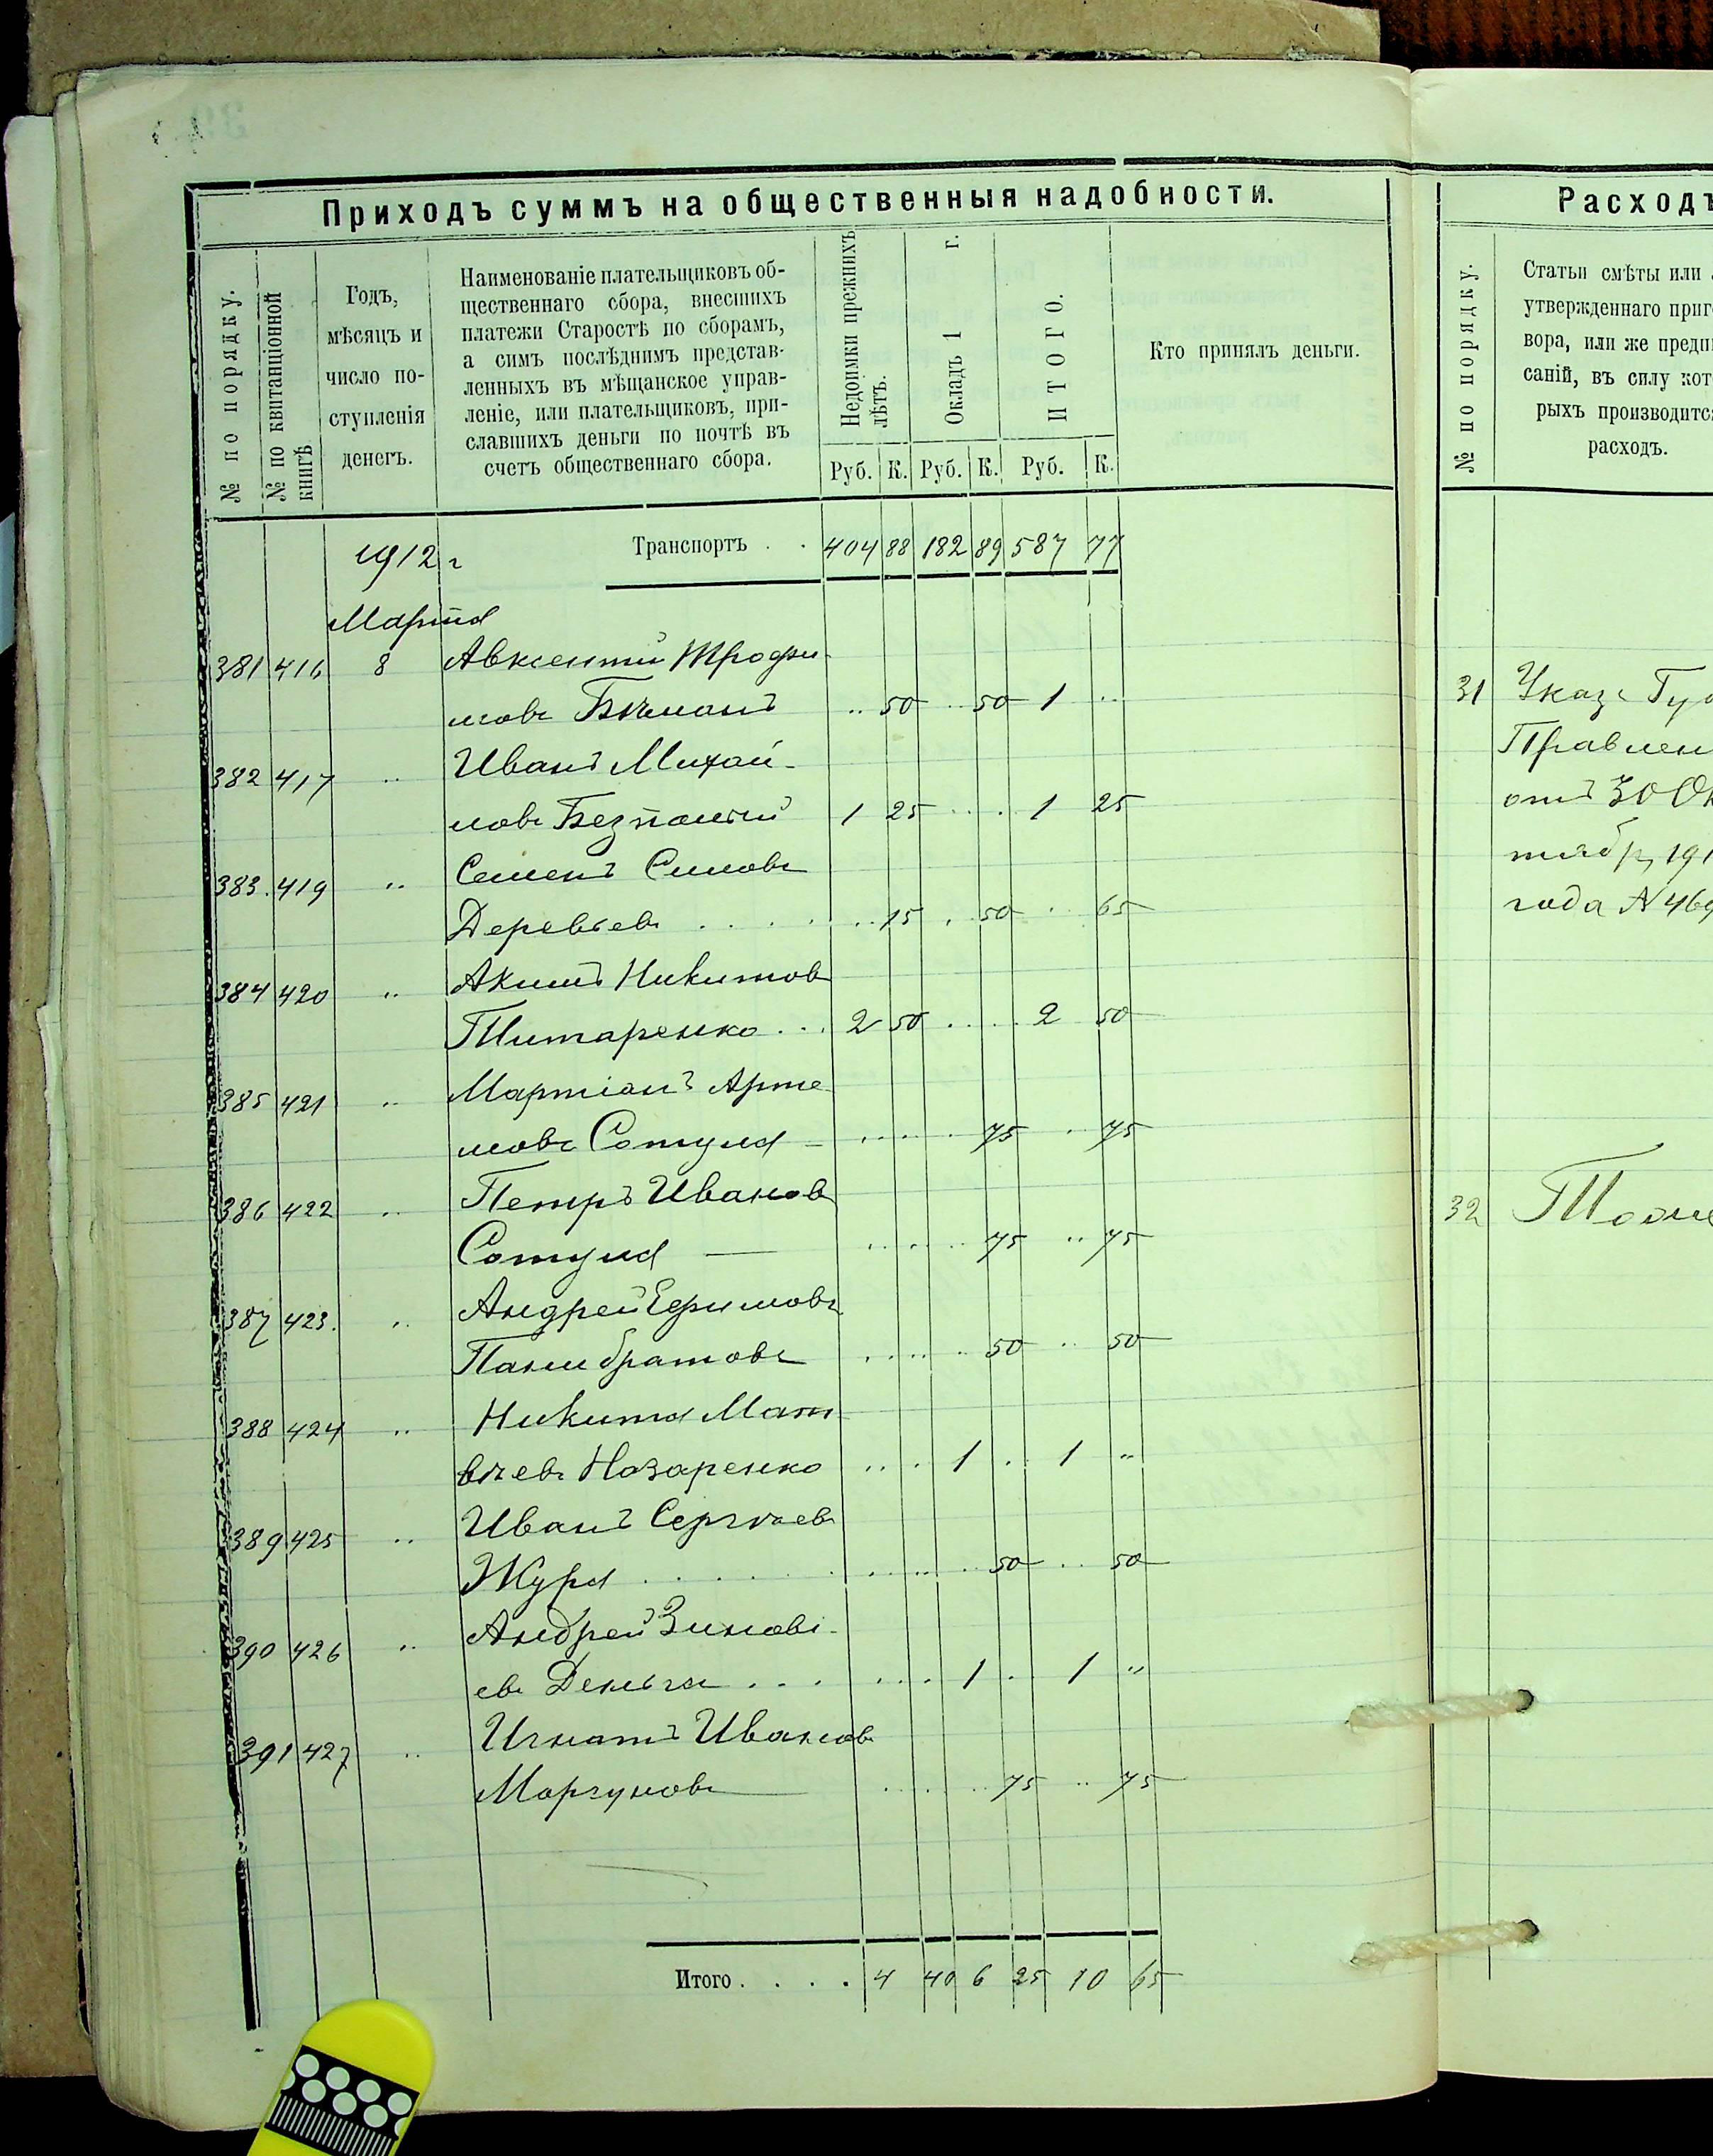 Приходъ суммъ на общественныя надобности.
№ по порядку.
№ по квитанціонной книгѣ
Годъ, мѣсяцъ и число поступленія денегъ.
Наименованіе плательщиковъ об-
щественнаго сбора, внесшихъ
платежи Старостѣ по сборамъ,
а симъ послѣднимъ представ-
ленныхъ въ мѣщанское управ-
леніе, или плательщиковъ, при-
славшихъ деньги по почтѣ въ
счетъ общественнаго сбора.
Недоимки прежнихъ лѣтъ.
Окладъ 1 г.
ИТОГО.
Кто принялъ деньги.
Руб. К. Руб. К. Руб. К.
1912 г Транспортъ . . 404 88 182 89 587 77
Марта
381 416 8 Авксентій Трофи-
мовъ 50 50 1
382 417 Иванъ Михай-
ловъ 1 25 1 25
383. 419 Семенъ
Деревьевъ 15 50 65
384 420 Акимъ Никитовъ
Титаренко 2 50 2 50
385 421 Мартіанъ Арте
мовъ Сотула 75 75
386 422 Петръ Ивановъ
Сотула — 75 75
387 423. Андрей Ефимовъ
Панибратовъ 50 50
388 424 Никита Мат
вѣевъ Назаренко 1 1 "
389 425 Иванъ Сергѣевъ
Жура 50 50
390 426 Андрей Зиновi-
евъ Деньга 1 1 "
391 427 Игнатъ Ивановъ
Моргуновъ 75 75
Итого. . . . 4 40 6 25 10 65
Расходъ
№ по порядку.
Статьи смѣты или
утвержденнаго приго
вора, или же предпи
саній, въ силу кот
рыхъ производитс
расходъ.
31 Указъ Гу
Правлен
отъ 30 Ок
тября 191
года № 469
32 Тоже